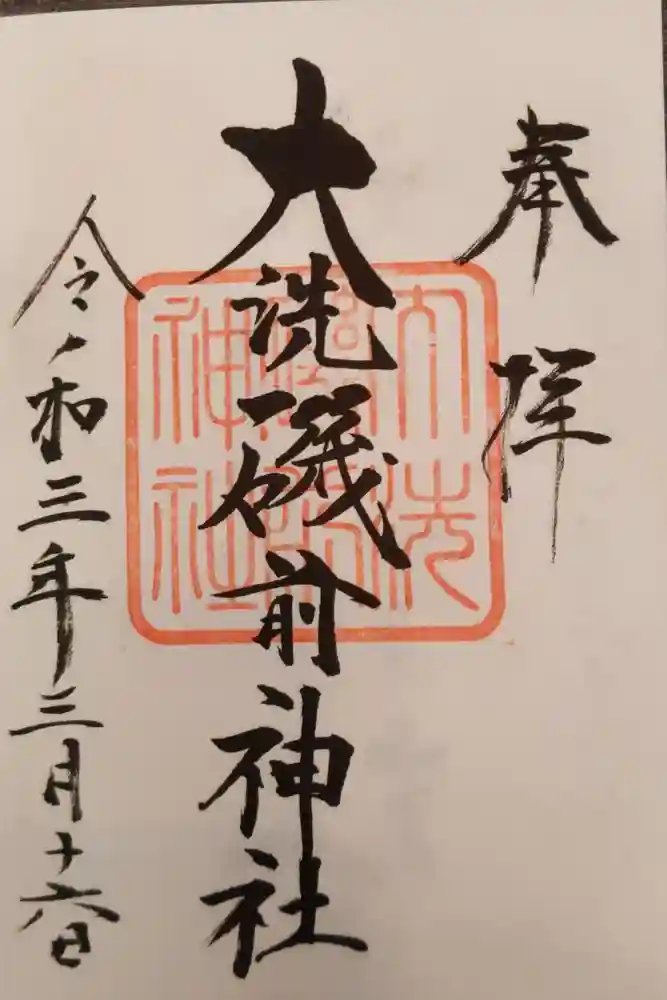 奉拝
大洗磯前神社
令和三年三月十六日
大洗
磯前
神社